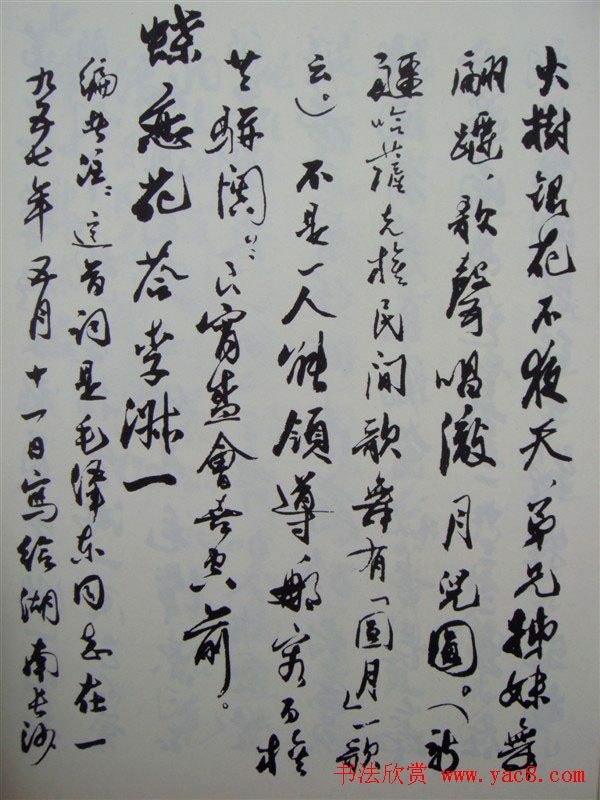 火樹銀花不夜天、弟兄姊妹舞
翩躚、歌聲唱澈月兒圓。（新
疆哈薩克族民間歌舞有「圓月」一歌
云）。不是一人能領導、那容百族
共駢闐、良宵盛會喜空前。
蝶戀花 答李淑一
編者注：這首詞是毛澤东同志在一
九五七年五月十一日寫給湖南长沙
书法欣赏 www.yac8.com